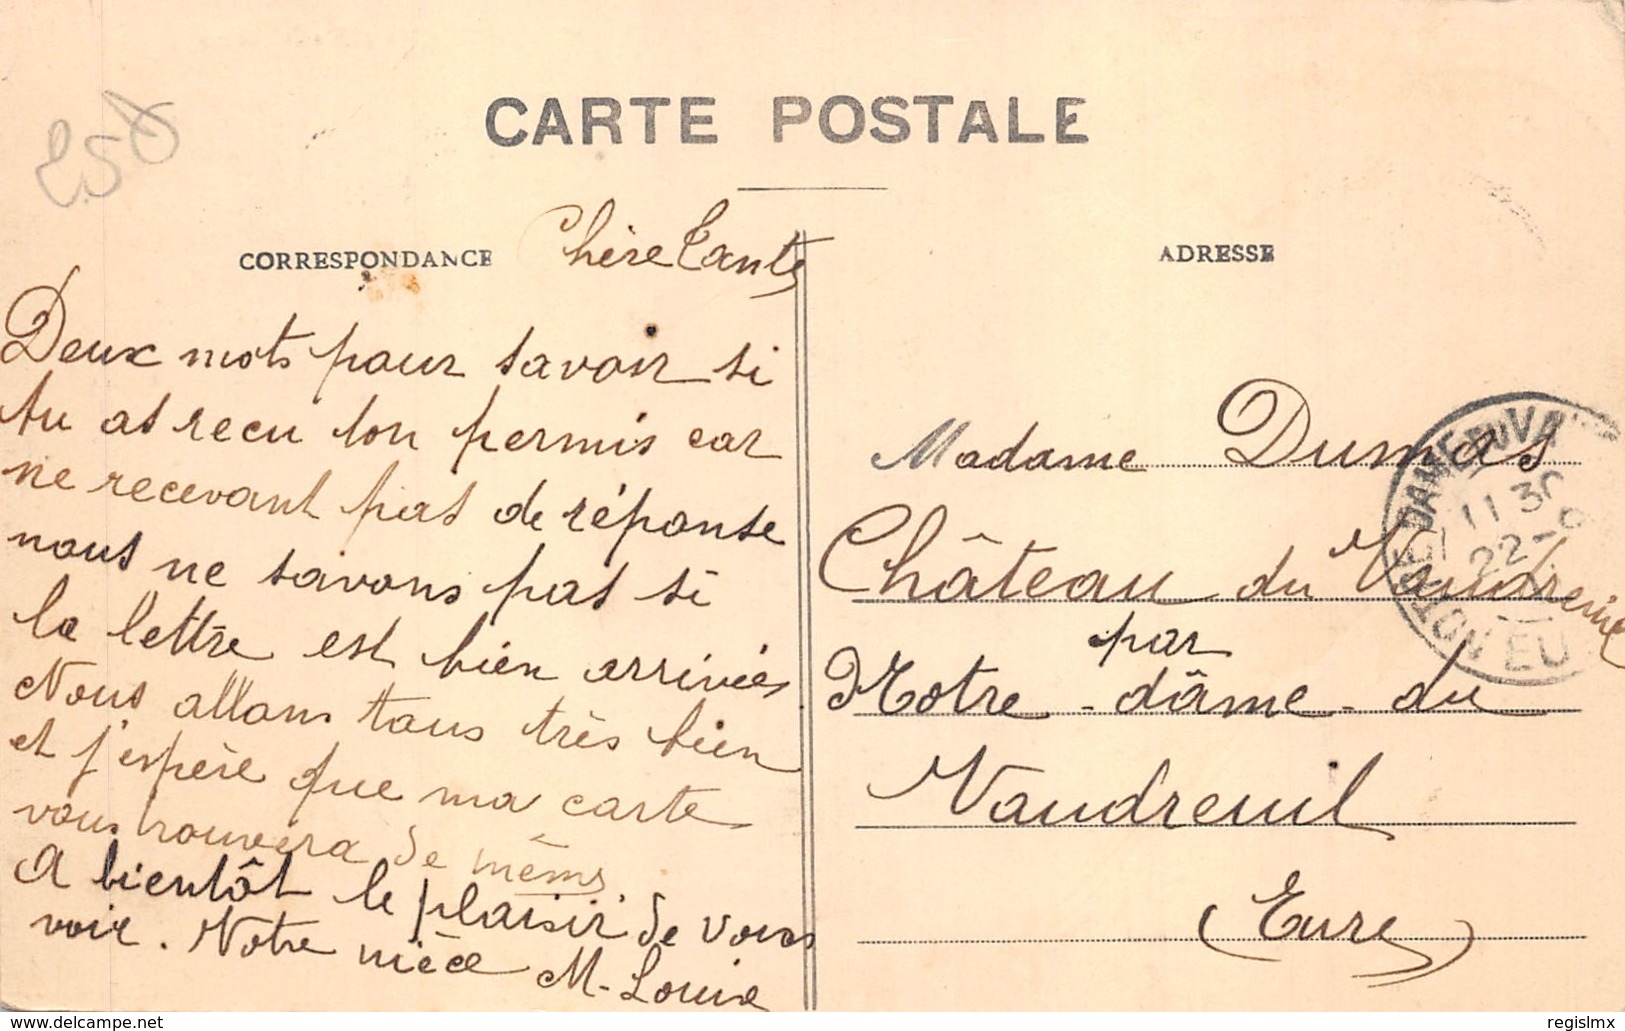 CARTE POSTALE
CORRESPONDANCE
Chère Tante
Deux mots pour savoir si
tu as recu ton permis car
ne recevant pas de réponse
nous ne savons pas si
la lettre est bien arrivée
Nous allons tous très bien
et j'espère que ma carte
vous trouvera de même
A bientôt le plaisir de vous
voir. Notre nièce M-Louise
ADRESSE
Madame Dumas
Château du Vaudreuil
par
Notre-dâme-du
Vaudreuil
(Eure)
11 30
22-
delcampe.net
regislmx